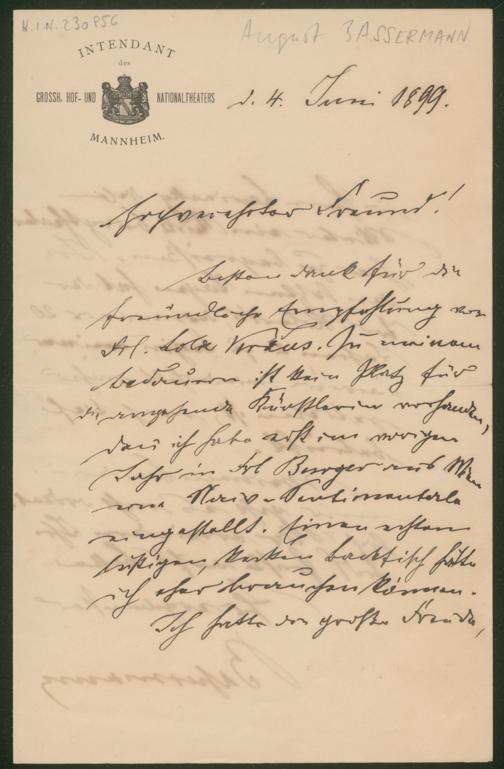 H.I.N. 230856
August BASSERMANN
INTENDANT
des
GROSSH. HOF- UND NATIONALTHEATERS
MANNHEIM.
d. 4. Juni 1899.
Hochverehrter Freund!
Besten Dank für die
freundliche Empfehlung von
Frl. Lola Kraus. Zu meinem
Bedauern ist kein Platz für
die angehende Künstlerin vorhanden,
denn ich habe erst im vorigen
Jahr in Frl. Berger aus Wien
eine Naiv-Sentimentale
eingestellt. Einen echten
lustigen, kecken Backfisch hätte
ich eher brauchen können.
Ich hatte die große Freude,